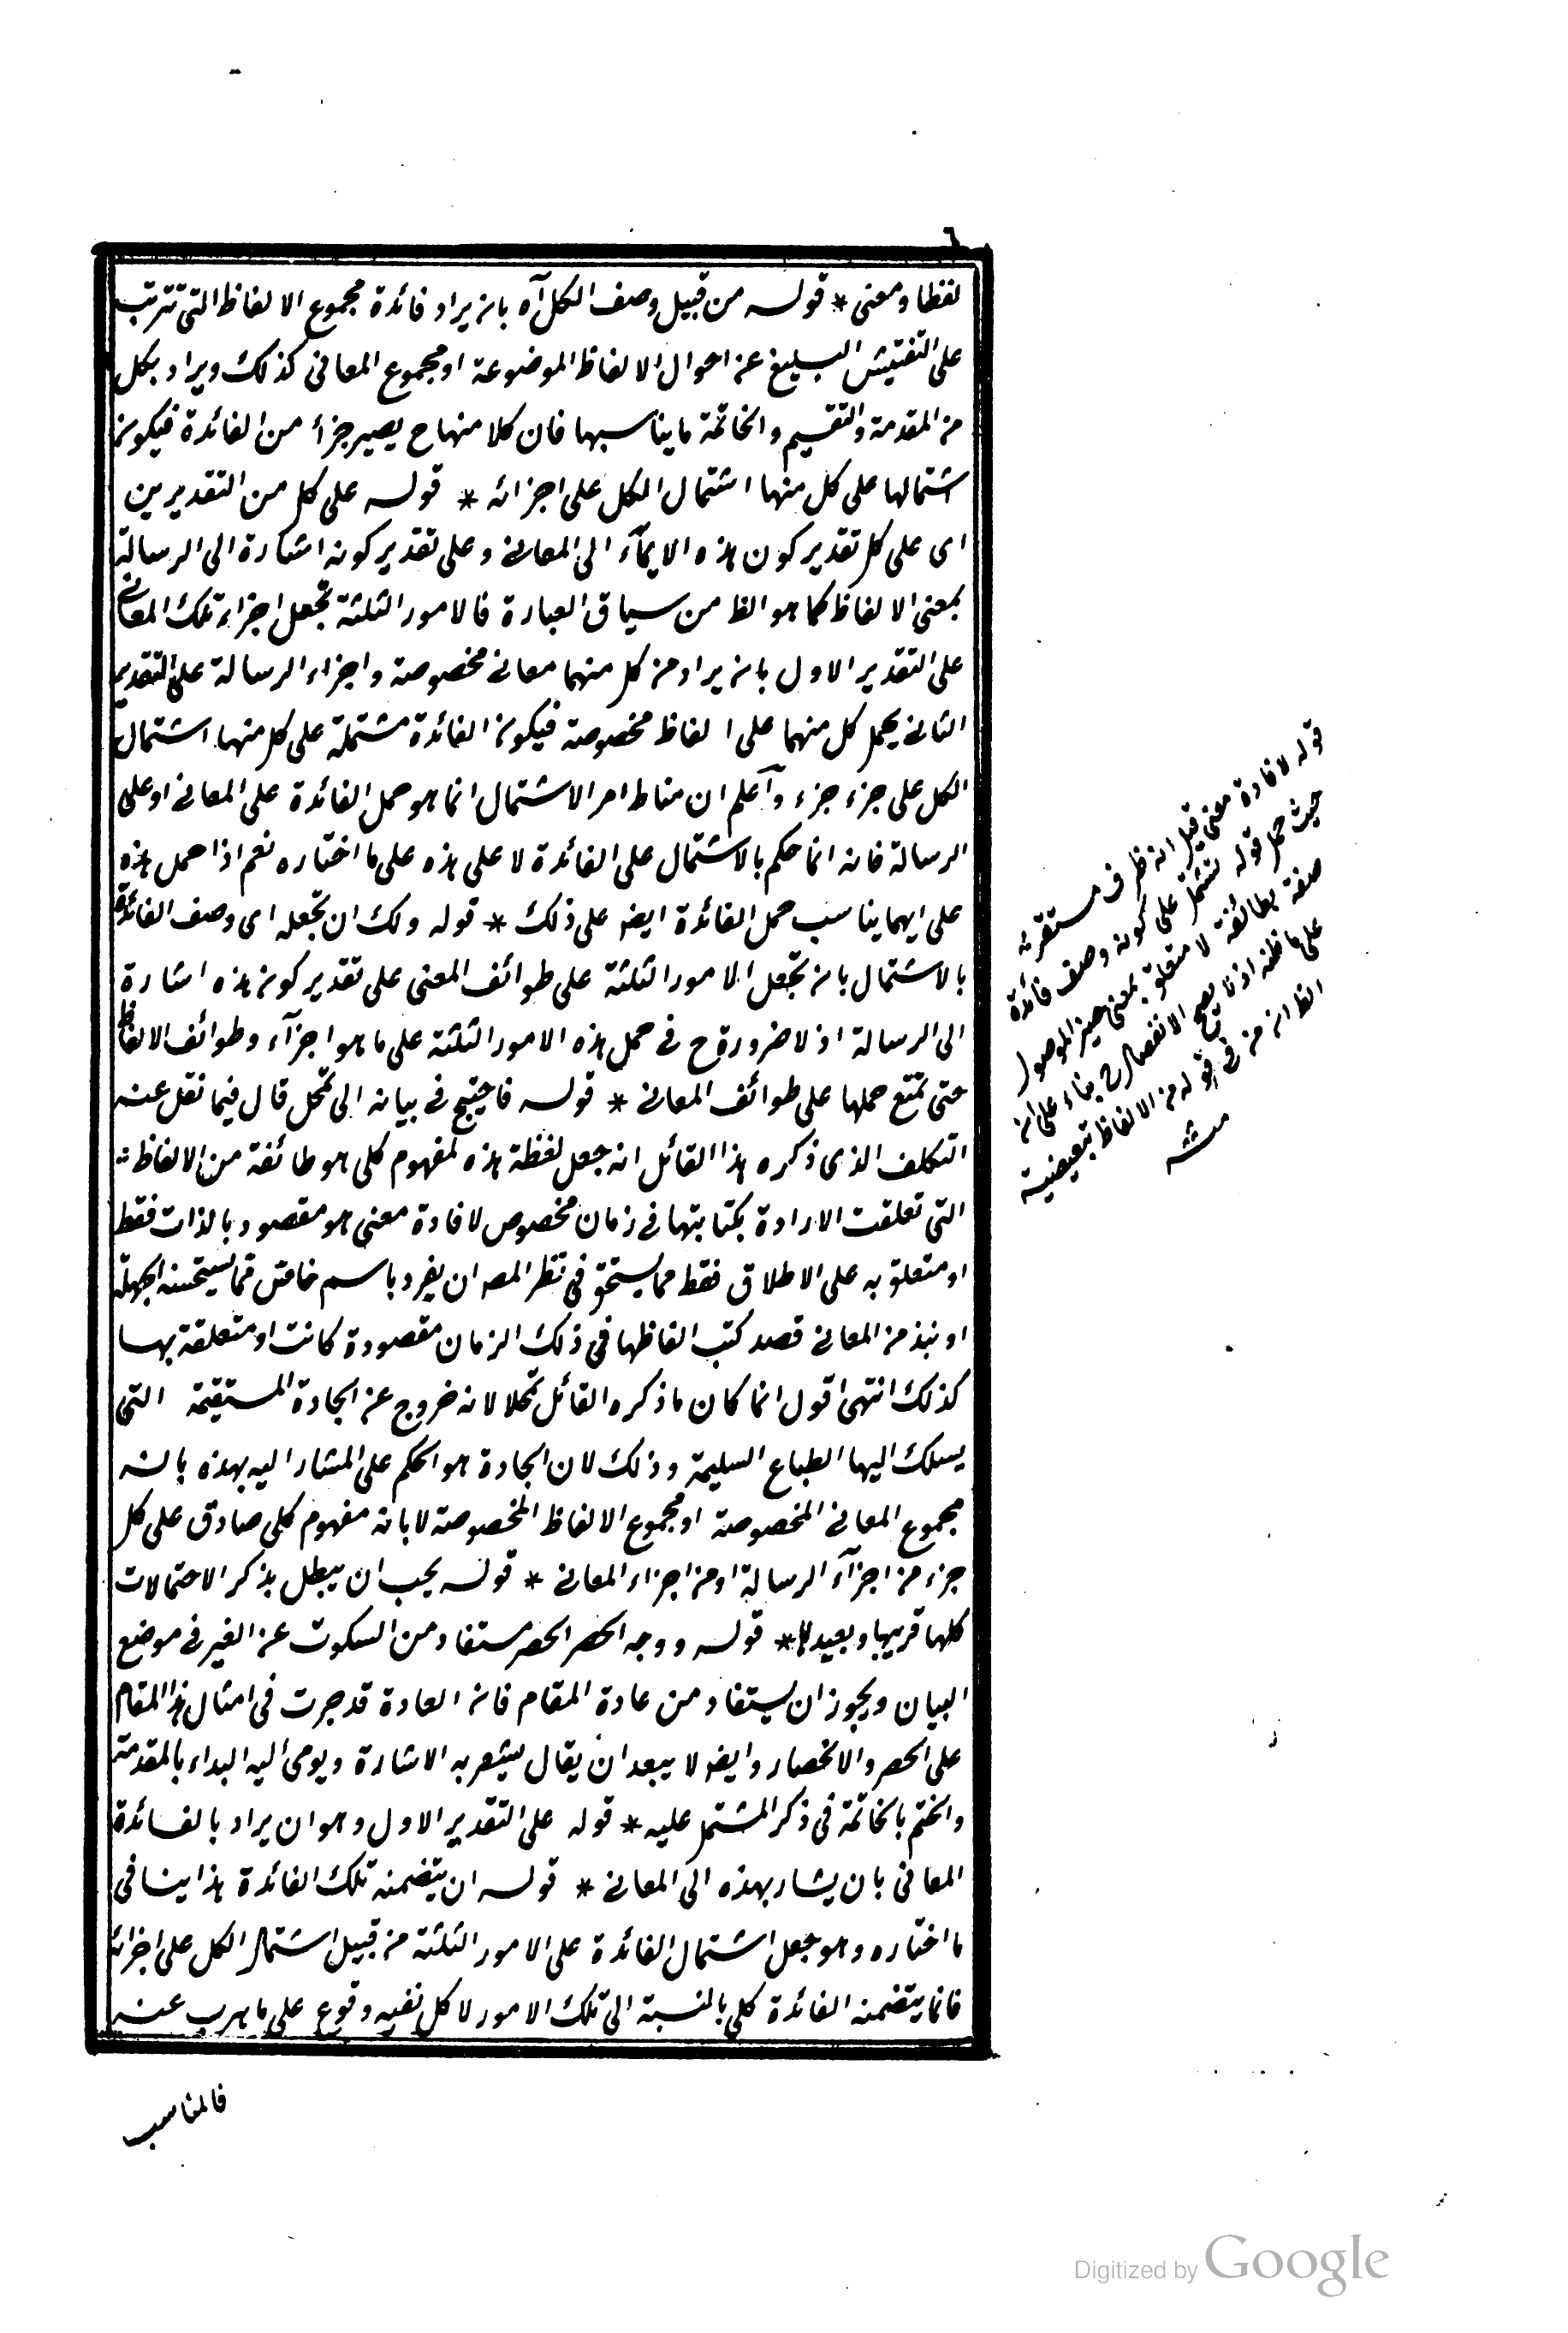 ٦
لفظا ومعنى * قوله من قبيل وصف الكل آه بان يراد فائدة مجموع الالفاظ التى تترتب
على التفتيش البليغ عن احوال الالفاظ الموضوعة او مجموع المعانى كذلك ويراد بكل
من المقدمة والتقسيم والخاتمة ما يناسبها فان كلا منها ح يصير جزأ من الفائدة فيكون
اشتمالها على كل منها اشتمال الكل على اجزائه * قوله على كل من التقديرين
اى على كل تقدير كون هذه الايمآء الى المعانى وعلى تقدير كونه اشارة الى الرسالة
بمعنى الالفاظ كما هو الظ من سياق العبارة فالامور الثلثة تجعل اجزاء تلك المعانى
على التقدير الاول بان يراد من كل منهما معانى مخصوصة واجزاء الرسالة على التقدير
الثانى يحمل كل منهما على الفاظ مخصوصة فيكون الفائدة مشتملة على كل منها اشتمال
الكل على جزء جزء وآعلم ان مناط امر الاشتمال انما هو حمل الفائدة على المعانى او على
الرسالة فانه انما حكم بالاشتمال على الفائدة لا على هذه على ما اختاره نعم اذا حمل هذه
على ايهما يناسب حمل الفائدة ايضا على ذلك * قوله ولك ان تجعله اى وصف الفائدة
بالاشتمال بان تجعل الامور الثلثة على طوائف المعنى على تقدير كون هذه اشارة
الى الرسالة اذ لا ضرورة ح فى حمل هذه الامور الثلثة على ما هو اجزآء وطوائف الالفاظ
حتى تمتنع حملها على طوائف المعانى * قوله فاحتيج فى بيانه الى تمحل قال فيما نقل عنه
التكلف الذى ذكره هذا القائل انه جعل لفظة هذه لمفهوم كلى هو طائفة من الالفاظ
التى تعلقت الارادة بكتابتها فى زمان مخصوص لافادة معنى هو مقصود بالذات فقط
او متعلق به على الاطلاق فقط مما يستحق فى نظر المص ان يفرد باسم خاص مما يستحسنه الجهلة
او نبذ من المعانى قصد كتب الفاظها فى ذلك الزمان مقصودة كانت او متعلقة بها
كذلك انتهى اقول انما كان ما ذكره القائل تمحلا لانه خروج عن الجادة المستقيمة التى
يسلك اليها الطباع السليمة وذلك لان الجادة هو الحكم على المشار اليه بهذه بانه
مجموع المعانى المخصوصة او مجموع الالفاظ المخصوصة لا بانه مفهوم كلى صادق على كل
جزء من اجزآء الرسالة او من اجزاء المعانى * قوله يجب ان يبطل بذكر الاحتمالات
كلها قريبها وبعيدها * قوله ووجه الحصر الحصر مستفاد من السكوت عن الغير فى موضع
البيان ويجوز ان يستفاد من عادة المقام فان العادة قد جرت فى امثال هذا المقام
على الحصر والانحصار وايضا لا يبعد ان يقال يشعر به الاشارة ويومى اليه البداء بالمقدمة
والختم بالخاتمة فى ذكر المشتمل عليه * قوله على التقدير الاول وهو ان يراد بالفائدة
المعانى بان يشار بهذه الى المعانى * قوله ان يتضمنه تلك الفائدة هذا ينافى
ما اختاره وهو جعل اشتمال الفائدة على الامور الثلثة من قبيل اشتمال الكل على اجزائه
فانما يتضمنه الفائدة كلى بالنسبة الى تلك الامور لا كل نفيه وقوع على ما هرب عنه
فالمناسب
قوله لافادة معنى قيل انه ظرف مستقر
حيث حمل قوله تشتمل على كونه وصف فائدة
صفة بطائفة لا متعلق بمعنى حيز الموصول
على ما ظنه اذ لا يصح الانفصال ح بناء على ان
الظ ان من فى قوله من الالفاظ تبعيضية
منه
Digitized by Google